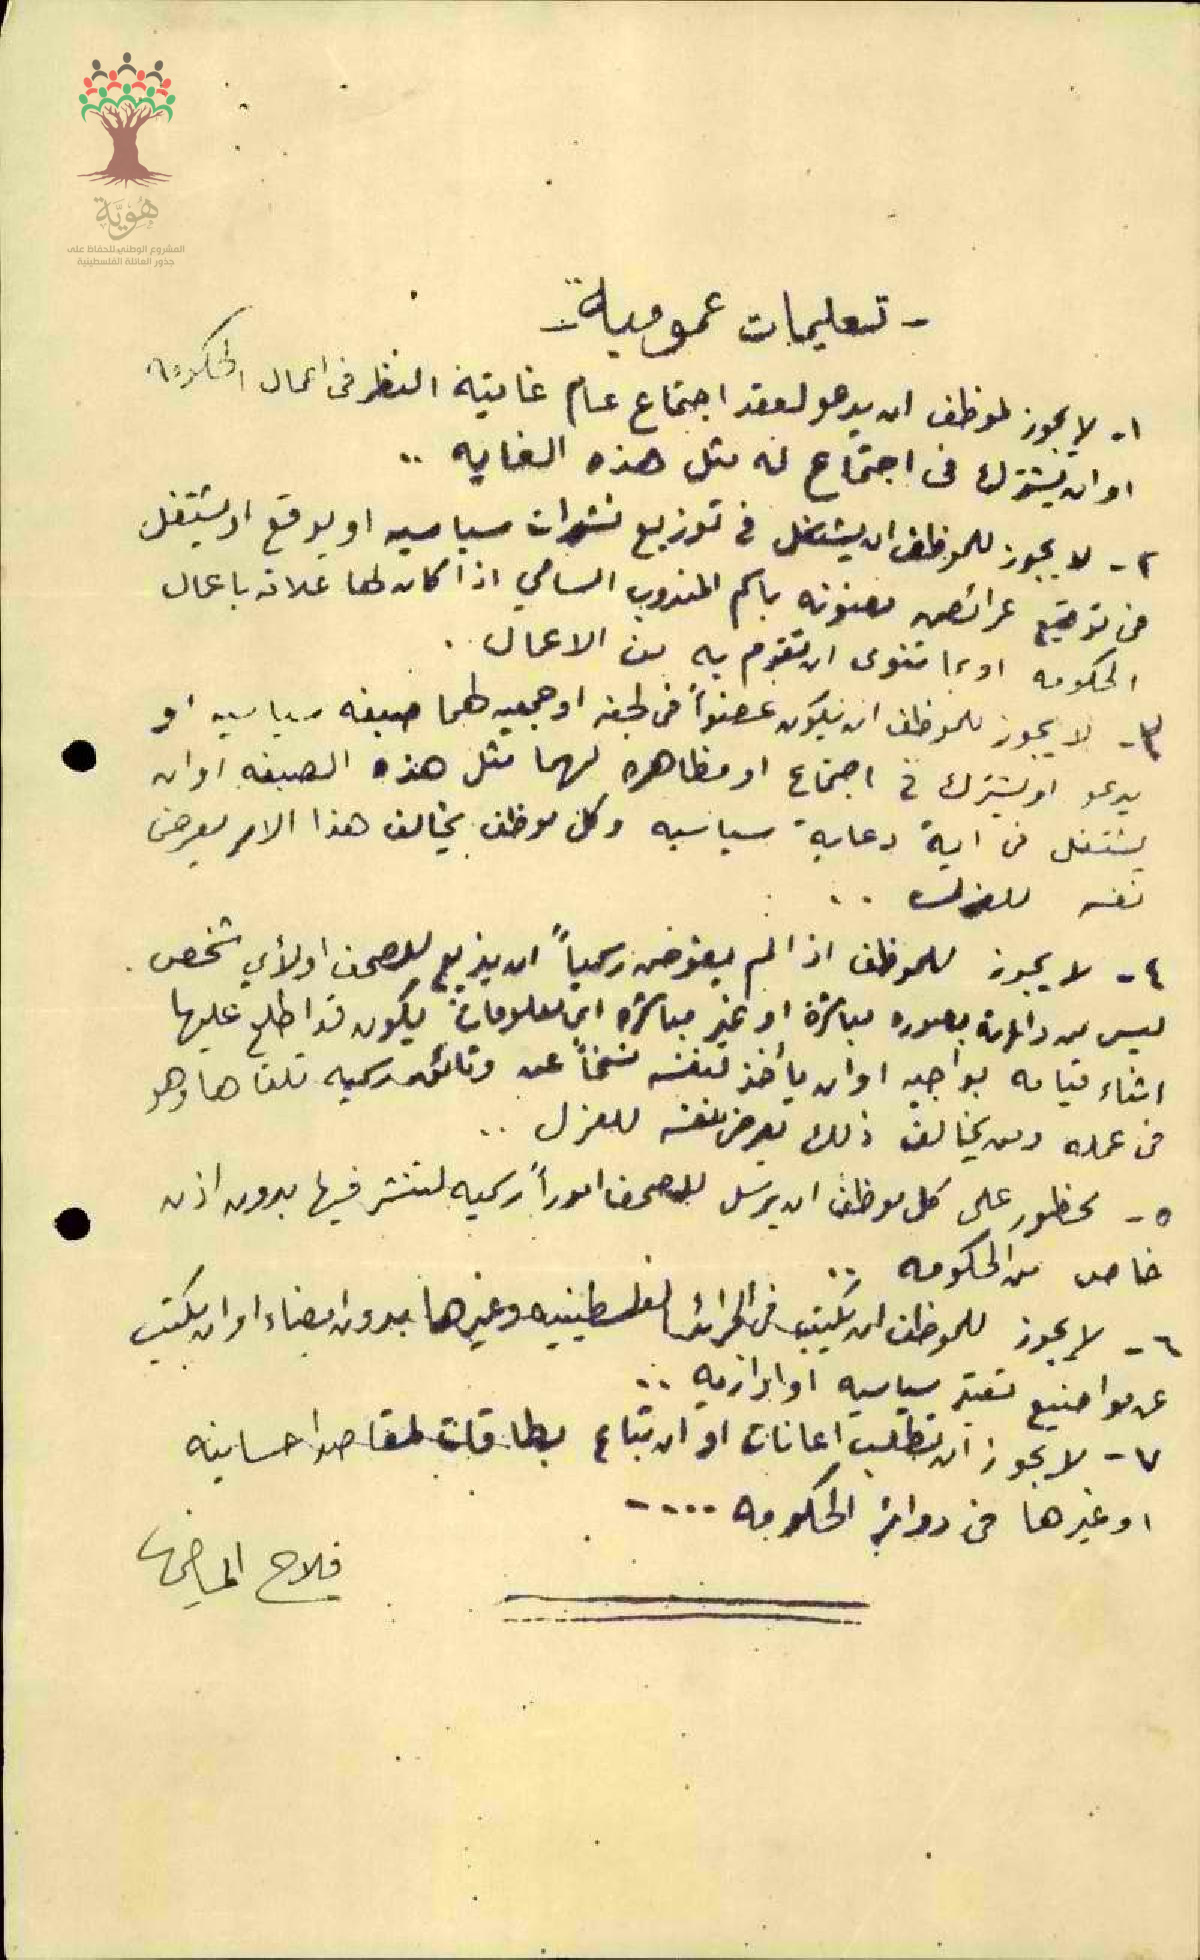 هُوِيَّة
المشروع الوطني للحفاظ على
جذور العائلة الفلسطينية
- تعليمات عمومية :-
١- لا يجوز لموظف ان يدعو لعقد اجتماع عام غايته النظر في اعمال الحكومه
او ان يشترك في اجتماع له مثل هذه الغايه ..
٢- لا يجوز للموظف ان يشتغل في توزيع نشرات سياسيه او يوقع او يشتغل
في توقيع عرائض معنونه باسم المندوب السامي اذا كان لها علاقه باعمال
الحكومه او بما تنوي ان تقوم به من الاعمال ..
٣- لا يجوز للموظف ان يكون عضواً في لجنه او جمعيه لهما صبغه سياسيه او
يدعو او يشترك في اجتماع او مظاهره لهما مثل هذه الصبغه او ان
يشتغل في اية دعاية سياسيه وكل موظف يخالف هذا الامر يعرض
نفسه للعزل ..
٤- لا يجوز للموظف اذا لم يفوض رسمياً ان يذيع للصحف او لأي شخص
ليس من دائرته بصوره مباشرة او غير مباشره اي معلومات يكون قد اطلع عليها
اثناء قيامه بواجبه او ان يأخذ لنفسه نسخاً عن وثائق رسميه تلقاها وهو
في عمله ومن يخالف ذلك يعرض نفسه للعزل ..
٥- محظور على كل موظف ان يرسل للصحف اموراً رسميه لتنشر فيها بدون اذن
خاص من الحكومه ..
٦- لا يجوز للموظف ان يكتب في الجرائد الفلسطينيه وغيرها بدون امضاء او ان يكتب
عن مواضيع تعتبر سياسيه او اداريه ..
٧- لا يجوز ان تطلب اعانات او ان تباع بطاقات لمقاصد احسانيه
او غيرها في دوائر الحكومه ....
فلاح الماضي